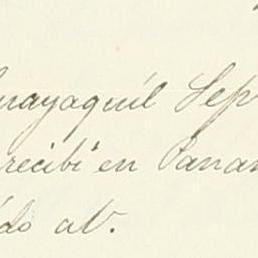 Guayaquil Sep
recibi en Panam
ido at.